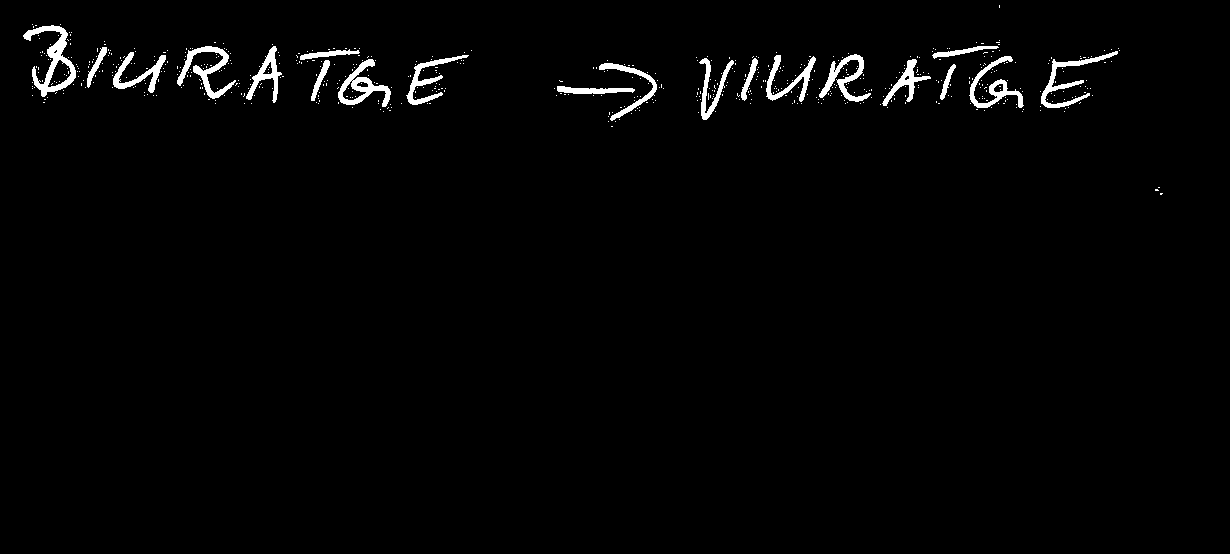 BIURATGE → VIURATGE